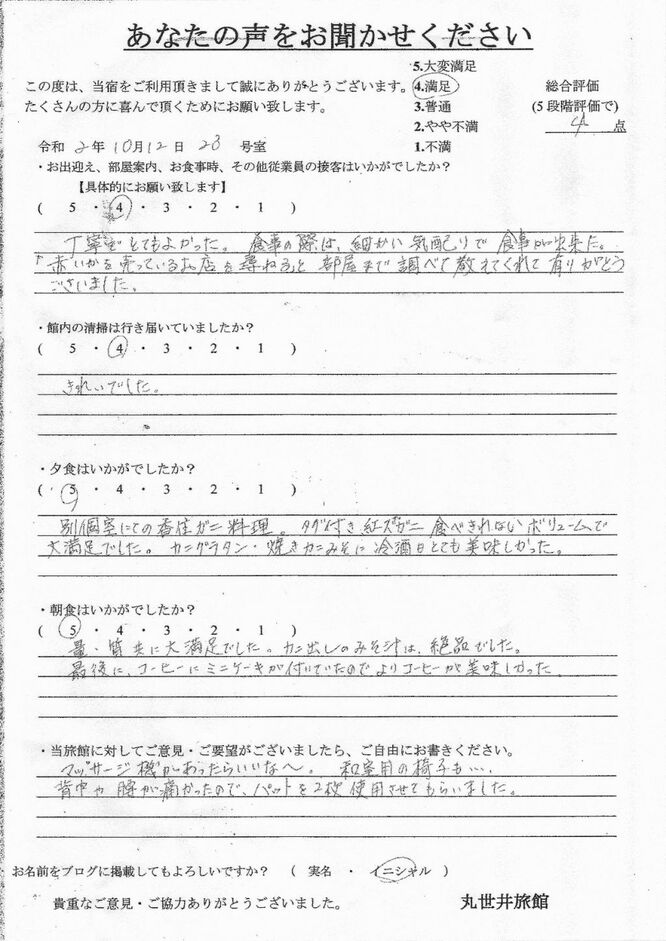 あなたの声をお聞かせください
この度は、当宿をご利用頂きまして誠にありがとうございます。
たくさんの方に喜んで頂くためにお願い致します。
5.大変満足
4.満足
3.普通
2.やや不満
1.不満
総合評価
(5段階評価で)
4 点
令和 2年 10月12日 23 号室
・お出迎え、部屋案内、お食事時、その他従業員の接客はいかがでしたか?
【具体的にお願い致します】
( 5 ・ 4 ・ 3 ・ 2 ・ 1 )
丁寧でとてもよかった。食事の際は、細かい気配りで食事が出来た。
赤いかを売っているお店を尋ねると部屋まで調べて教えてくれて有りがとう
ございました。
・館内の清掃は行き届いていましたか?
( 5 ・ 4 ・ 3 ・ 2 ・ 1 )
きれいでした。
・夕食はいかがでしたか?
( 5 ・ 4 ・ 3 ・ 2 ・ 1 )
別個室にての香住ガニ料理。タグ付き紅ズガニ食べきれないボリュームで
大満足でした。カニグラタン・焼きカニみそに冷酒もとても美味しかった。
・朝食はいかがでしたか?
( 5 ・ 4 ・ 3 ・ 2 ・ 1 )
量・質共に大満足でした。カニ出しのみそ汁は、絶品でした。
最後に、コーヒーにミニケーキが付いていたのでよりコーヒーが美味しかった
・当旅館に対してご意見・ご要望がございましたら、ご自由にお書きください。
マッサージ機があったらいいな〜。和室用の椅子も…
背中や腰が痛かったので、パットを2枚使用させてもらいました。
お名前をブログに掲載してもよろしいですか? ( 実名 ・ イニシャル )
貴重なご意見・ご協力ありがとうございました。
丸世井旅館